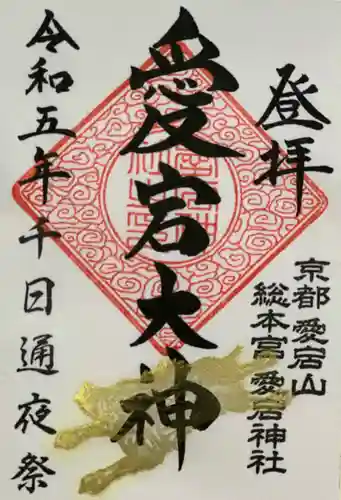 登拝
京都 愛宕山
総本宮 愛宕神社
愛宕大神
令和五年千日通夜祭